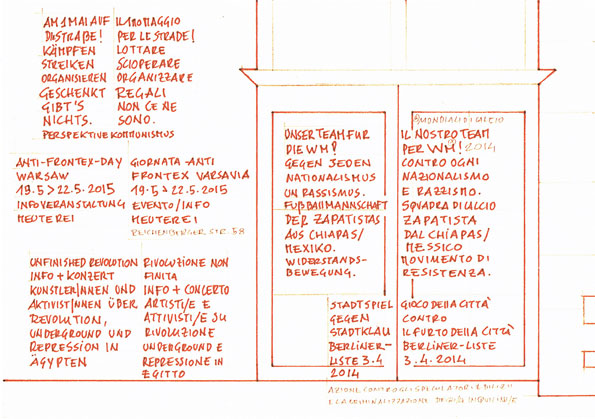 AM 1 MAI AUF
DIE STRAßE!
KÄMPFEN
STREIKEN
ORGANISIEREN
GESCHENKT
GIBT'S
NICHTS.
PERSPEKTIVE KOMMUNISMUS
IL 1 MAGGIO
PER LE STRADE!
LOTTARE
SCIOPERARE
ORGANIZZARE
REGALI
NON CE NE
SONO.
ANTI-FRONTEX-DAY
WARSAW
19.5 > 22.5.2015
INFOVERANSTALTUNG
MEUTEREI
GIORNATA-ANTI
FRONTEX VARSAVIA
19.5 > 22.5.2015
EVENTO/INFO
MEUTEREI
REICHENBERGER STR. 58
UNFINISHED REVOLUTION
INFO + KONZERT
KÜNSTLER/INNEN UND
AKTIVIST/INNEN ÜBER
REVOLUTION,
UNDERGROUND UND
REPRESSION IN
ÄGYPTEN
RIVOLUZIONE NON
FINITA
INFO + CONCERTO
ARTISTI/E E
ATTIVISTI/E SU
RIVOLUZIONE
UNDERGROUND E
REPRESSIONE IN
EGITTO
UNSER TEAM FUR
DIE WM!
GEGEN JEDEN
NATIONALISMUS
UN RASSISMUS.
FUßBALLMANNSCHAFT
DER ZAPATISTAS
AUS CHIAPAS/
MEXIKO.
WIDERSTANDS-
BEWEGUNG.
MONDIALI DI CALCIO
IL NOSTRO TEAM
PER WM! 2014
CONTRO OGNI
NAZIONALISMO
E RAZZISMO.
SQUADRA DI CALCIO
ZAPATISTA
DAL CHIAPAS/
MESSICO
MOVIMENTO DI
RESISTENZA.
STADTSPIEL
GEGEN
STADTKLAU
BERLINER-
LISTE 3.4
2014
GIOCO DELLA CITTÀ
CONTRO
IL FURTO DELLA CITTÀ
BERLINER-LISTE
3.4.2014
AZIONE CONTRO GLI SPECULATORI EDILIZI